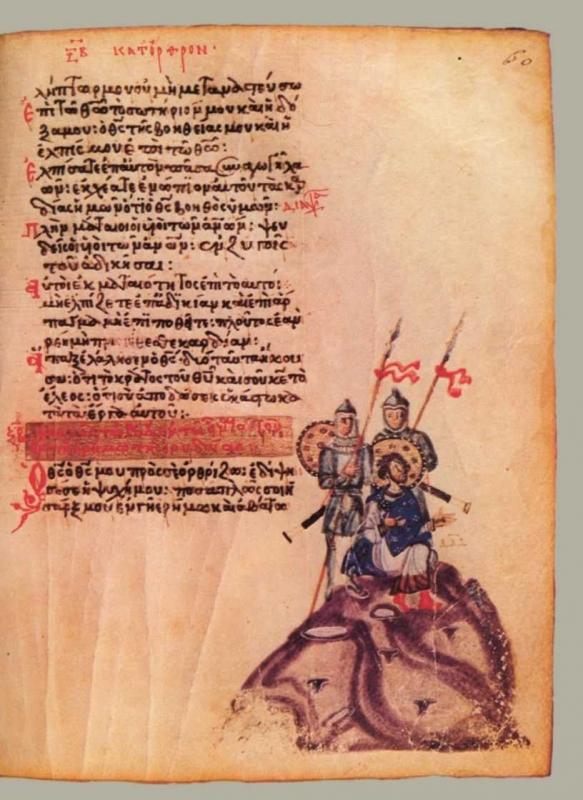 ΞΒ ΚΑΤΟΡΘΡΟΝ· 60
λήπτωρ μου οὐ μὴ μεταναστεύσω
Ἐπὶ τῷ θεῷ τὸ σωτήριόν μου καὶ ἡ δό
ξα μου: ὁ θς τῆς βοηθείας μου καὶ ἡ
ἐλπίς μου ἐπὶ τῷ θεῷ:
Ἐλπίσατε ἐπ αὐτὸν πᾶσα συναγωγὴ λα
ῶν: ἐκχέατε ἐνώπιον αὐτοῦ τὰς καρ
δίας ὑμῶν ὅτι ὁ θς βοηθὸς ἡμῶν:
Πλὴν μάταιοι οἱ υἱοὶ τῶν ἀνῶν: ψευ
δεῖς οἱ υἱοὶ τῶν ἀνῶν: ἐν ζυγοῖς
τοῦ ἀδικῆσαι:
Αὐτοὶ ἐκ ματαιότητος ἐπὶ τὸ αὐτό:
μὴ ἐλπίζετε ἐπ ἀδικίαν καὶ ἐπὶ ἅρ
παγμα μὴ ἐπιποθεῖτε: πλοῦτος ἐὰν
ρέει μὴ καρδίαν:
ἅπαξ ἐλάλησεν ὁ θς δύο ταῦτα ἤκου
σα: ὅτι τὸ κράτος τοῦ θῦ καὶ σοῦ κε τὸ
ἔλεος: ὅτι σὺ ἀποδώσεις ἑκάστῳ κα
τὰ τὰ ἔργα αὐτοῦ:
Ὁ θεὸς ὁ θς μου πρὸς σὲ ὀρθρίζω: ἐδίψη
σέ σοι ἡ ψυχή μου: ποσαπλῶς σοι ἡ
σάρξ μου ἐν γῇ ἐρήμῳ καὶ ἀβάτῳ